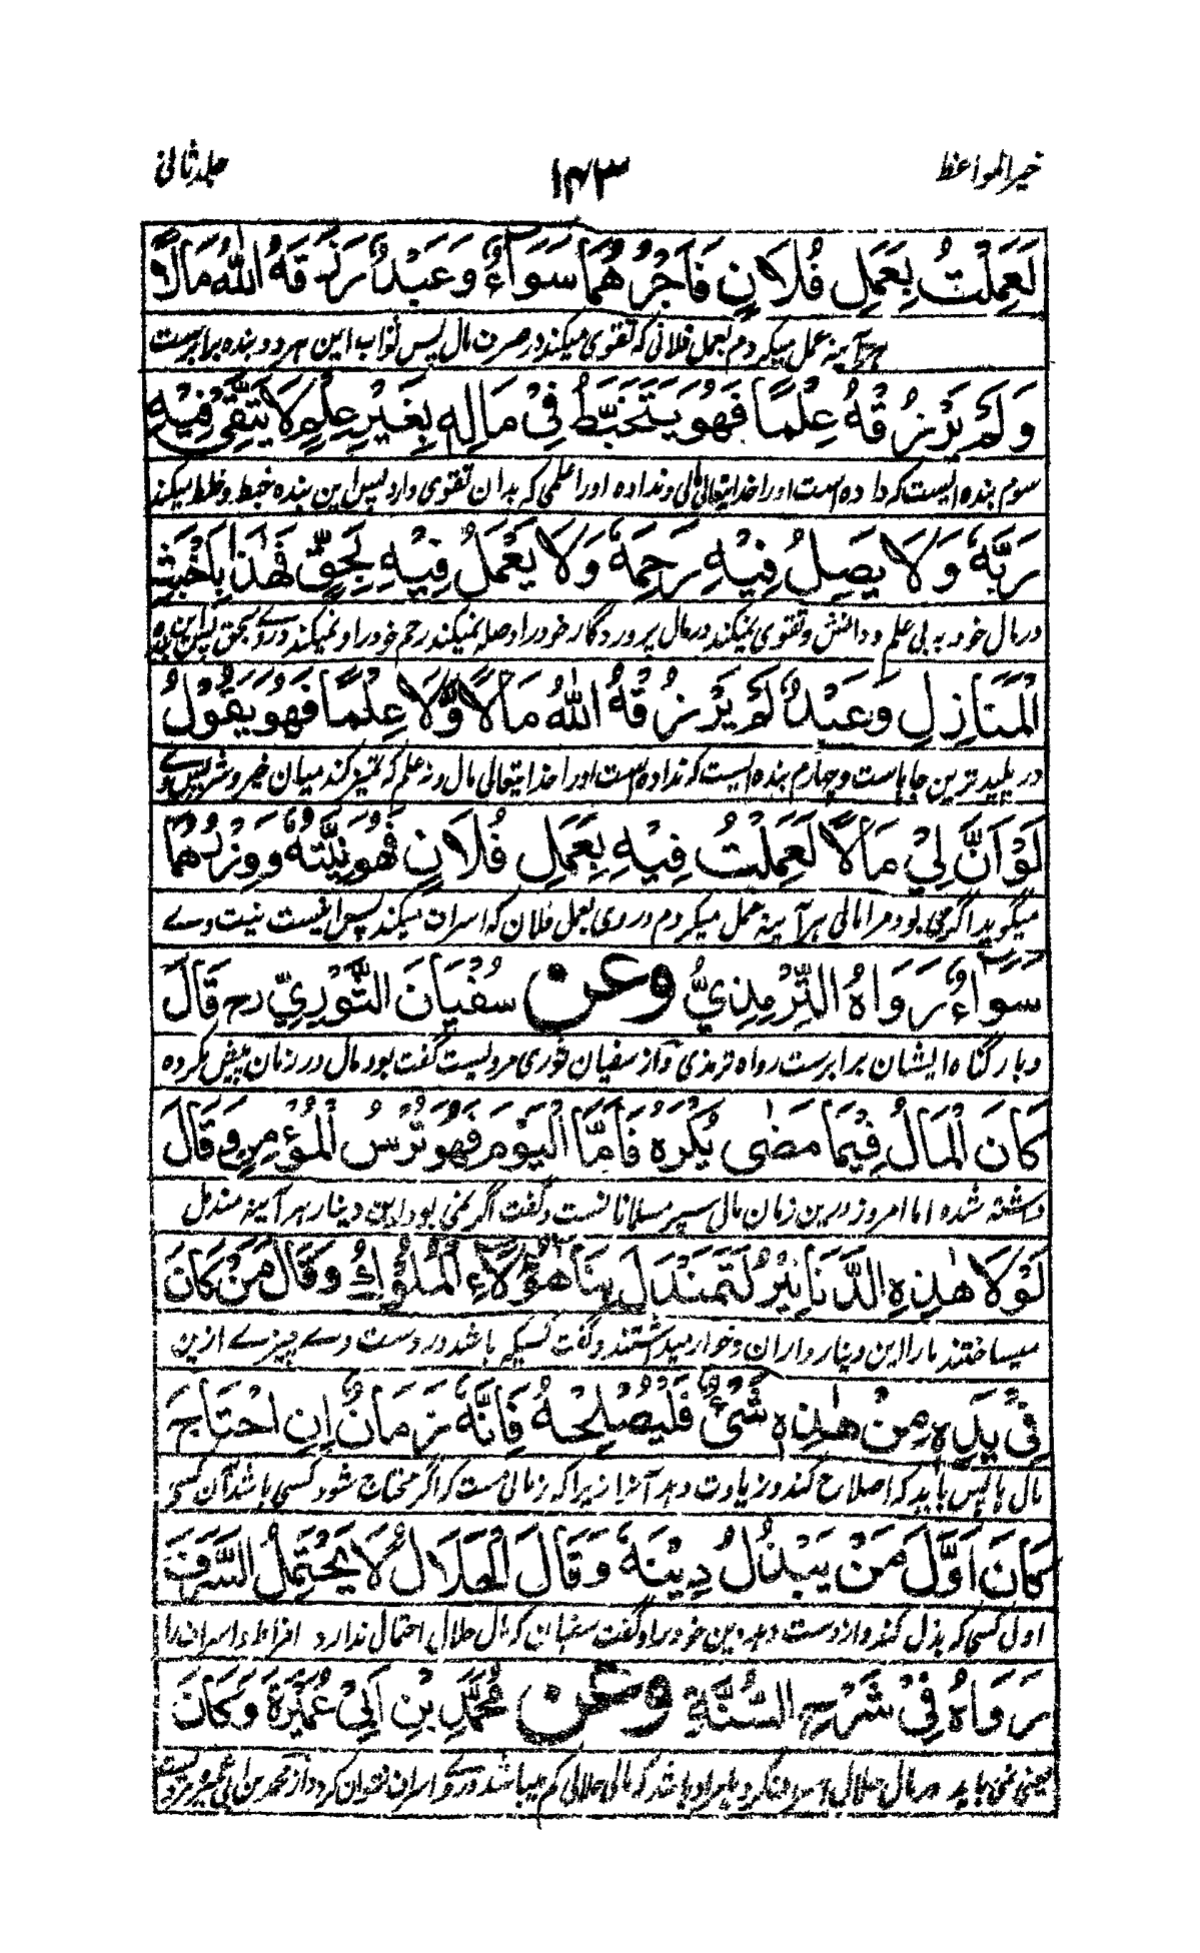 خیر المواعظ ۱۴۳ جلد ثانی
لَعَمِلْتُ بِعَمَلِ فُلَانٍ فَاَجْرُهُمَا سَوَآءٌ وَعَبْدٌ رَزَقَهُ اللهُ مَالًا
هر آینه عمل میکردم بعمل فلانی که تقوی میکند در صرف مال پس ثواب این هر دو بنده برابرست
وَلَمْ يَرْزُقْهُ عِلْمًا فَهُوَ يَتَخَبَّطُ فِيْ مَالِهِ بِغَيْرِ عِلْمٍ لَا يَتَّقِيْ فِيْهِ
سوم بنده ایست که داده است اورا خدایتعالی مالی و نداده اورا علمی که بدان تقوی دارد پس این بنده خبط و خلط میکند
رَبَّهُ وَلَا يَصِلُ فِيْهِ رَحِمَهُ وَلَا يَعْمَلُ فِيْهِ بِحَقٍّ فَهٰذَا بِاَخْبَثِ
در مال خود به بی علم و دانش و تقوی نمیکند در مال پروردگار خود را و صله نمیکند رحم خود را و نمیکند دروے بحق پس این بنده
الْمَنَازِلِ وَعَبْدٌ لَمْ يَرْزُقْهُ اللهُ مَالًا وَّلَا عِلْمًا فَهُوَ يَقُوْلُ
در پلید ترین جاهاست و چهارم بنده ایست که نداده است اورا خدایتعالی مال و نه علم که تمیز کند میان خیر و شر پس وے
لَوْ اَنَّ لِيْ مَالًا لَعَمِلْتُ فِيْهِ بِعَمَلِ فُلَانٍ فَهُوَ نِيَّتُهُ وَوِزْرُهُمَا
میگوید اگر می بود مرا مالی هر آینه عمل میکردم در وی بعمل فلان که اسراف میکند پس اینست نیت وے
سَوَآءٌ رَوَاهُ التِّرْمِذِيُّ وعن سُفْيَانَ الثَّوْرِيِّ رح قَالَ
و بار گناه ایشان برابرست رواه ترمذی و از سفیان ثوری مرویست گفت بود مال در زمان پیش مکروه
كَانَ الْمَالُ فِيْمَا مَضٰى يُكْرَهُ فَاَمَّا الْيَوْمَ فَهُوَ تُرْسُ الْمُؤْمِنِ وَقَالَ
داشته شده اما امروز درین زمان مال سپر مسلمانانست و گفت اگر نمی بود این دینار هر آینه مندیل
لَوْلَا هٰذِهِ الدَّنَانِيْرُ لَتَمَنْدَلَ بِنَا هٰؤُلَاءِ الْمُلُوْكُ وَقَالَ مَنْ كَانَ
میساختند مارا این دینار داران و خوار میداشتند و گفت کسیکه باشد در دست وے چیزے ازین
فِيْ يَدِهِ مِنْ هٰذِهِ شَيْئٌ فَلْيُصْلِحْهُ فَاِنَّهُ زَمَانٌ اِنِ احْتَاجَ
مال ها پس باید که اصلاح کند و زیادت دهد آنرا زیرا که زمانی است که اگر محتاج شود کسی باشد آن کس
كَانَ اَوَّلَ مَنْ يَبْذُلُ دِيْنَهُ وَقَالَ الْحَلَالُ لَا يَحْتَمِلُ السَّرَفَ
اول کسی که بذل کند و از دست دهد دین خود را و گفت سفیان که مال حلال احتمال ندارد افراط و اسراف را
رَوَاهُ فِيْ شَرْحِ السُّنَّةِ وعن مُحَمَّدِ بْنِ اَبِيْ عُمَيْرَةَ وَكَانَ
یعنی نمی باید در مال حلال اسراف کرد یا مراد باشد که مالی حلالی کم میباشد دروے اسراف نتوان کرد و از محمد بن ابی عمیره